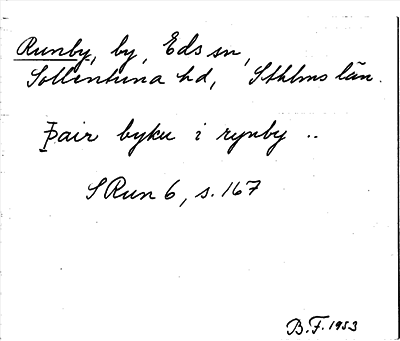 Runby, by, Eds sn,
Sollentuna hd, Sthlms län.
Þair byku i rynby ..
SRun 6, s. 167
B.F. 1953